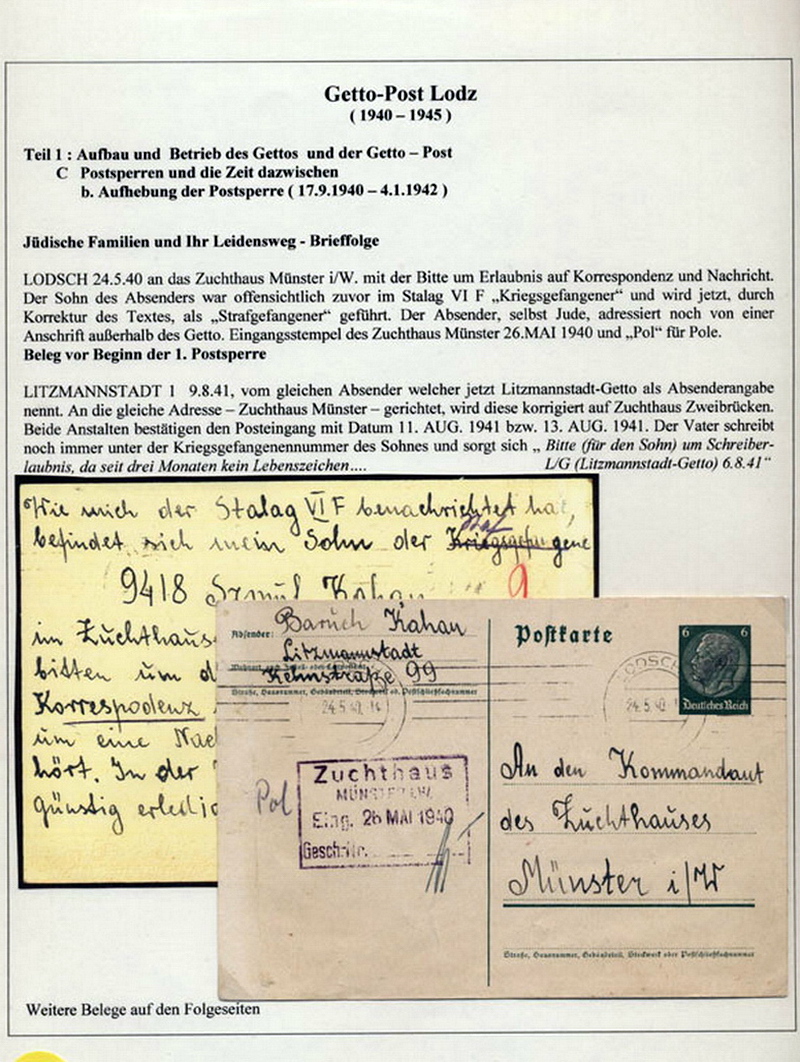 Getto-Post Lodz
( 1940 – 1945 )
Teil 1 : Aufbau und Betrieb des Gettos und der Getto – Post
C Postsperren und die Zeit dazwischen
b. Aufhebung der Postsperre ( 17.9.1940 – 4.1.1942 )
Jüdische Familien und Ihr Leidensweg - Brieffolge
LODSCH 24.5.40 an das Zuchthaus Münster i/W. mit der Bitte um Erlaubnis auf Korrespondenz und Nachricht.
Der Sohn des Absenders war offensichtlich zuvor im Stalag VI F „Kriegsgefangener“ und wird jetzt, durch
Korrektur des Textes, als „Strafgefangener“ geführt. Der Absender, selbst Jude, adressiert noch von einer
Anschrift außerhalb des Getto. Eingangsstempel des Zuchthaus Münster 26.MAI 1940 und „Pol“ für Pole.
Beleg vor Beginn der 1. Postsperre
LITZMANNSTADT 1 9.8.41, vom gleichen Absender welcher jetzt Litzmannstadt-Getto als Absenderangabe
nennt. An die gleiche Adresse – Zuchthaus Münster – gerichtet, wird diese korrigiert auf Zuchthaus Zweibrücken.
Beide Anstalten bestätigen den Posteingang mit Datum 11. AUG. 1941 bzw. 13. AUG. 1941. Der Vater schreibt
noch immer unter der Kriegsgefangenennummer des Sohnes und sorgt sich „ Bitte (für den Sohn) um Schreiber-
laubnis, da seit drei Monaten kein Lebenszeichen.... L/G (Litzmannstadt-Getto) 6.8.41“
Wie mich der Stalag VI F benachrichtet hat,
befindet sich mein Sohn der Kriegsgefangene
9418 Szmul Kahan
9
im Zuchthaus
bitten um d
Korrespodenz
um eine Nac
hört. In der
günstig erledig
Absender: Baruch Kahan
Litzmannstadt
Straße, Hausnummer, Gebäudeteil, Stockwerk od. Postschließfachnummer
24.5.40
Pol
Zuchthaus
MÜNSTER i.W.
Eing. 26 MAI 1940
Gesch.-Nr.
Postkarte
6 6
Deutsches Reich
LODSCH
24.5.40
An den Kommandant
des Zuchthauses
Münster i/W
Straße, Hausnummer, Gebäudeteil, Stockwerk oder Postschließfachnummer
Weitere Belege auf den Folgeseiten